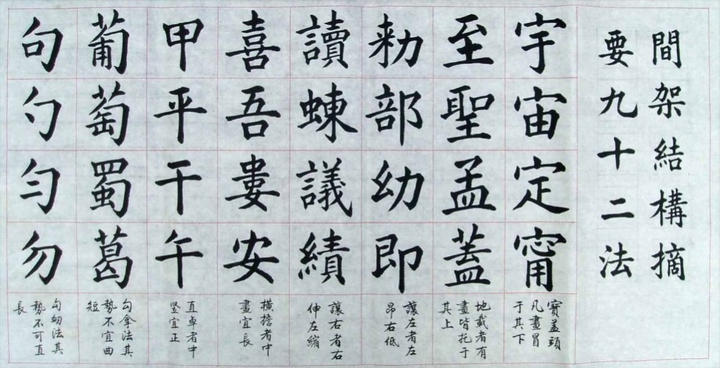 間架結構摘
要九十二法
宇宙定甯
寶蓋頭
凡畫冒
于其下
至聖孟蓋
地載者有
畫皆托于
其上
勑部幼即
讓左者左
昂右低
讀蝀議績
讓右者右
伸左縮
喜吾婁安
橫擔者中
畫宜長
甲平干午
直卓者中
竪宜正
葡萄蜀葛
勾拿法其
勢不宜曲
短
句勺勻勿
勾法其
勢不可直
長